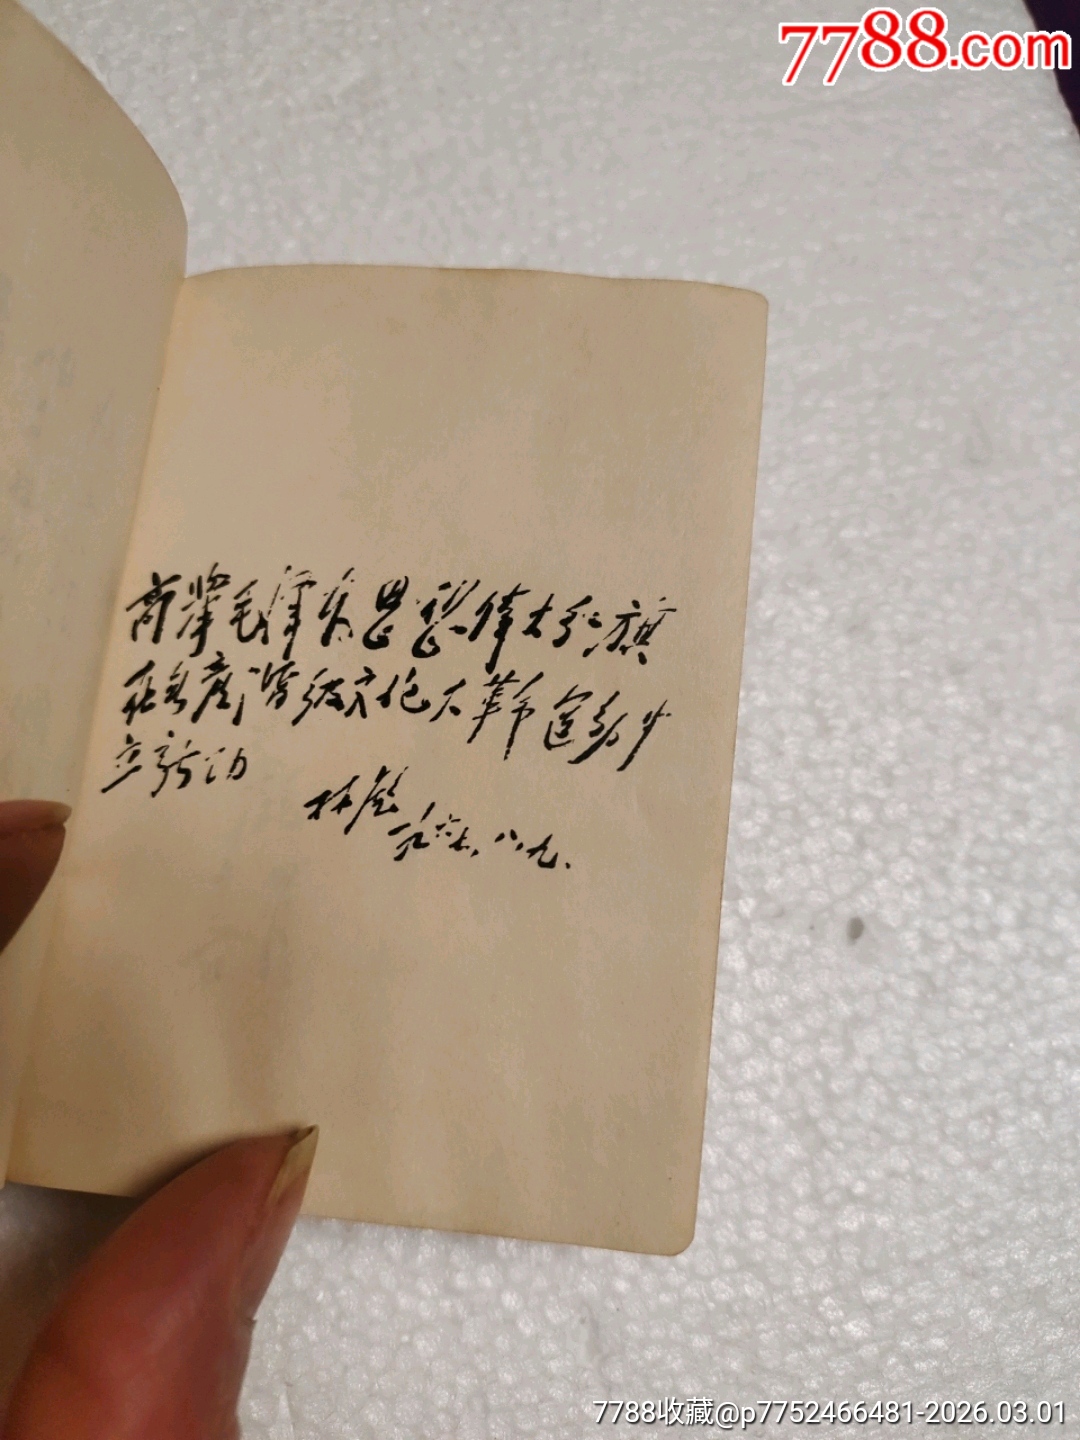 7788.com
高举毛泽东思想伟大红旗
在无产阶级文化大革命运动中
立新功
林彪
一九六七.八.九.
7788收藏@p7752466481-2026.03.01